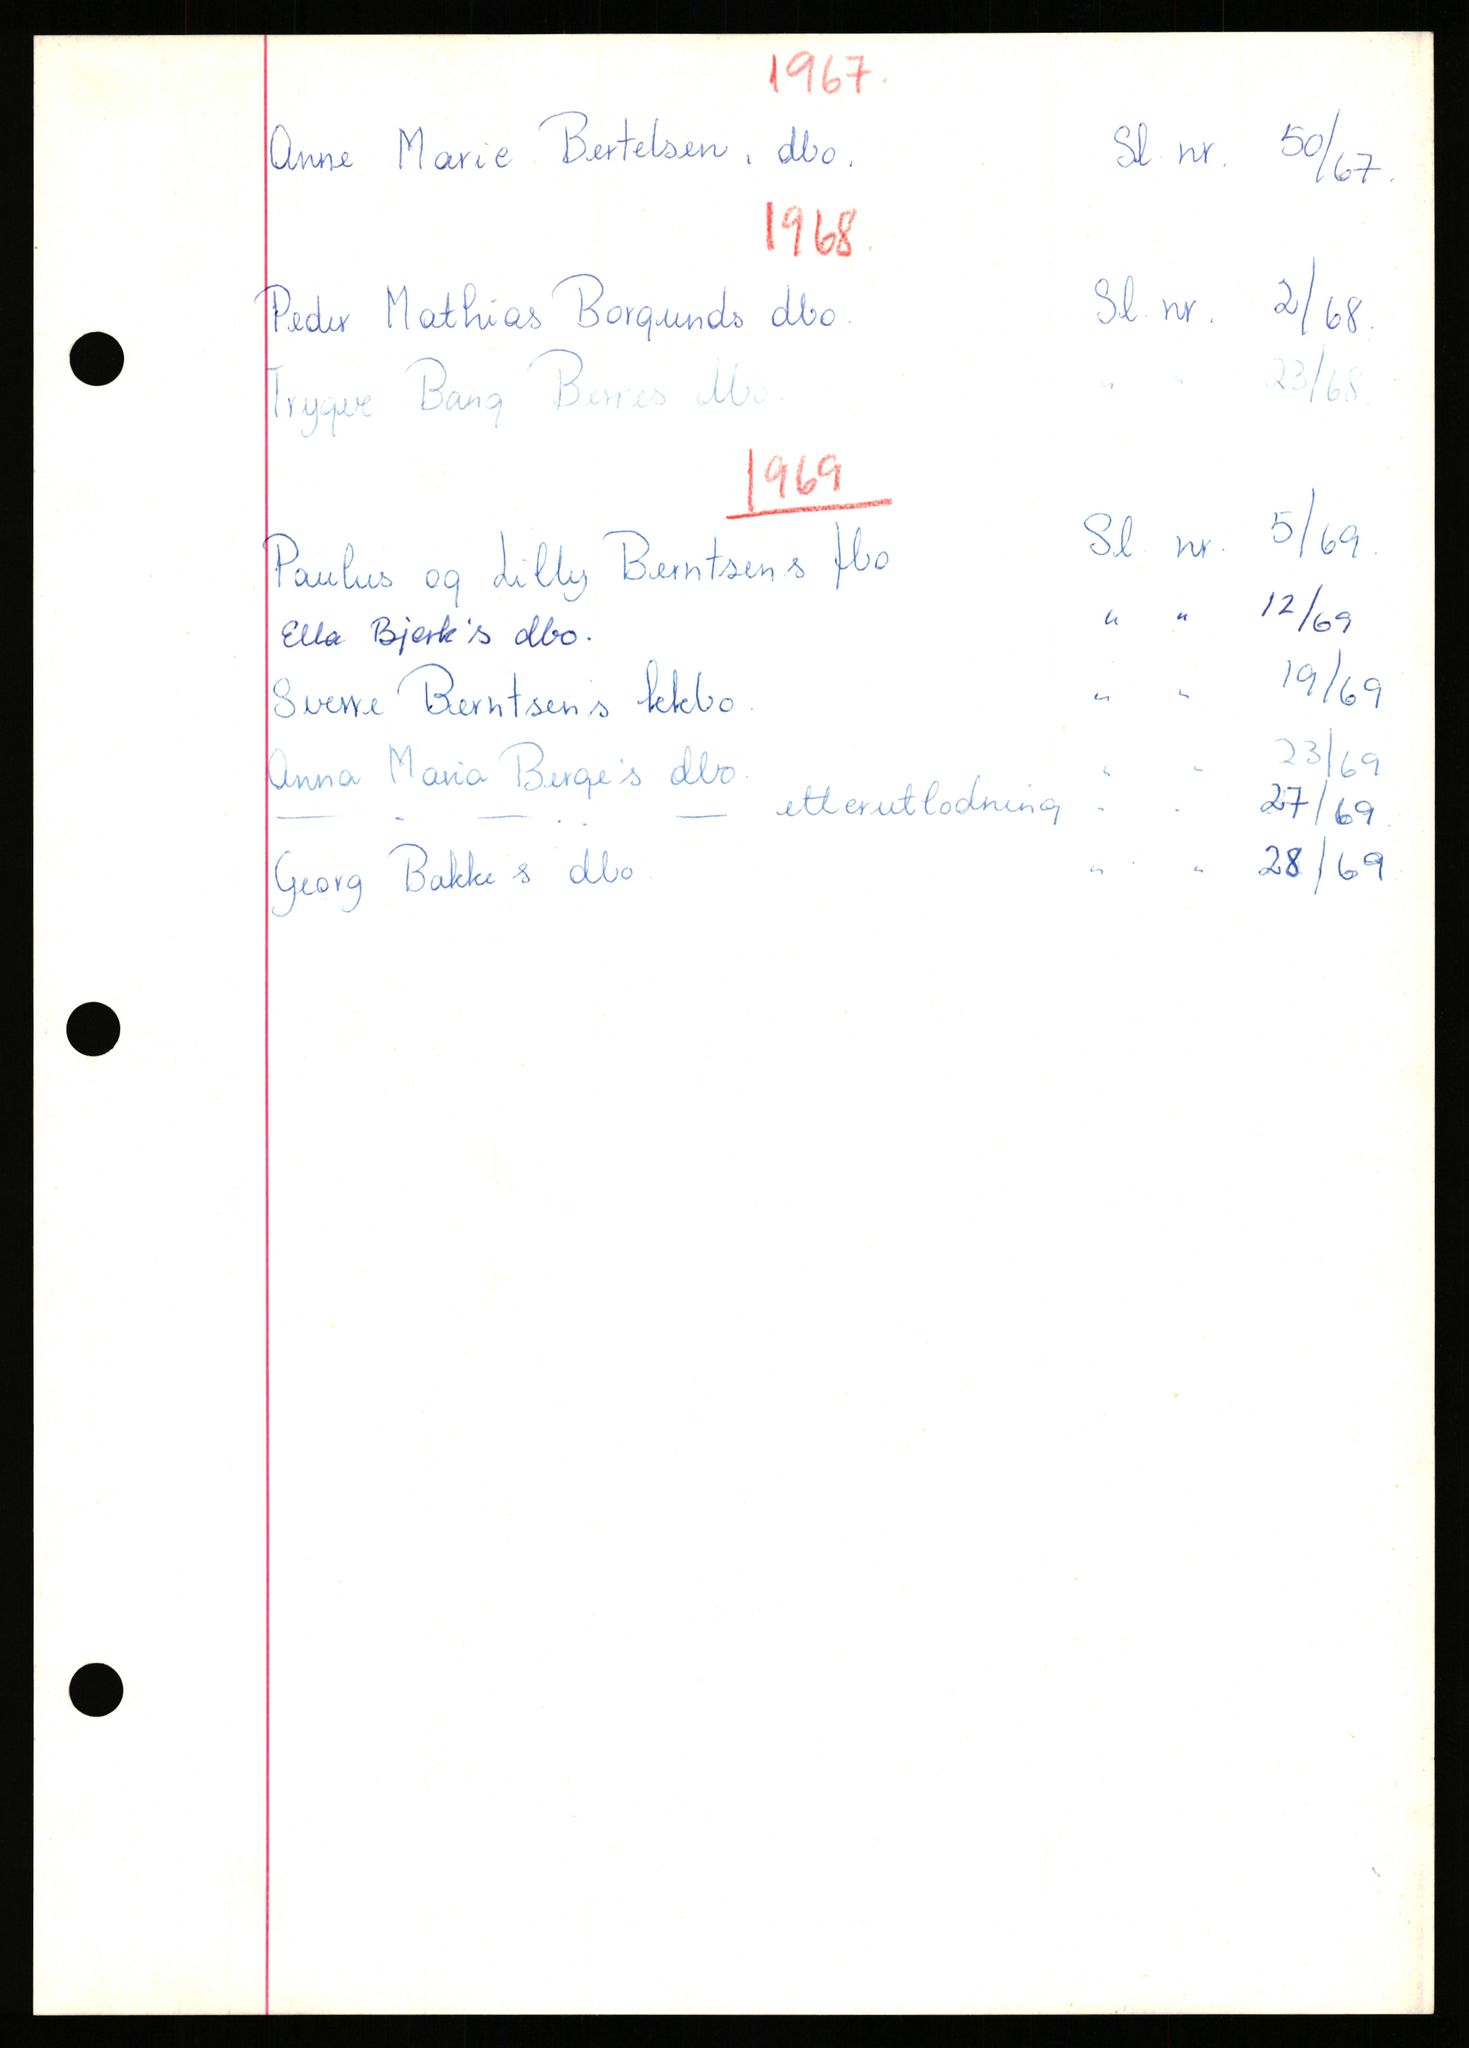 1967.
Anne Marie Bertelsen, dbo. Sl. nr. 50/67.
1968.
Peder Mathias Borgunds dbo. Sl. nr. 2/68.
Trygve Bang Berres dbo. " " 23/68.
1969
Paulus og Lilly Berntsens fbo Sl. nr. 5/69.
Ella Bjerk's dbo. " " 12/69
Sverre Berntsen's kkbo. " " 19/69
Anna Maria Berge's dbo. " " 23/69
— " — " — etterutlodning " " 27/69.
Georg Bakke's dbo. " " 28/69